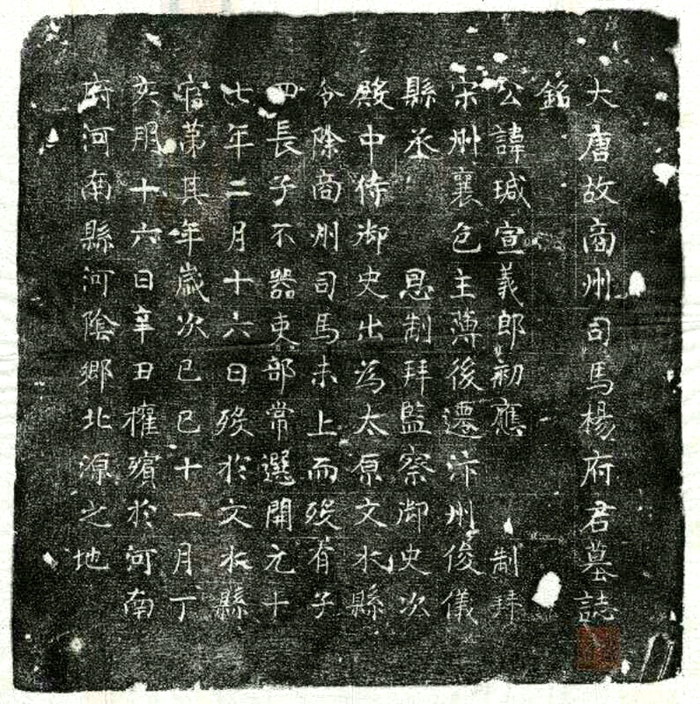 大唐故商州司馬楊府君墓誌
銘
公諱瑊宣義郎初應 制拜
宋州襄邑主薄後遷汴州俊儀
縣丞 恩制拜監察御史次
殿中侍御史出為太原文水縣
令除商州司馬未上而殁有子
四長子不器吏部常選開元十
七年二月十六日殁於文水縣
官第其年歲次己巳十一月丁
亥朔十六日辛丑權殯於河南
府河南縣河陰鄉北源之地